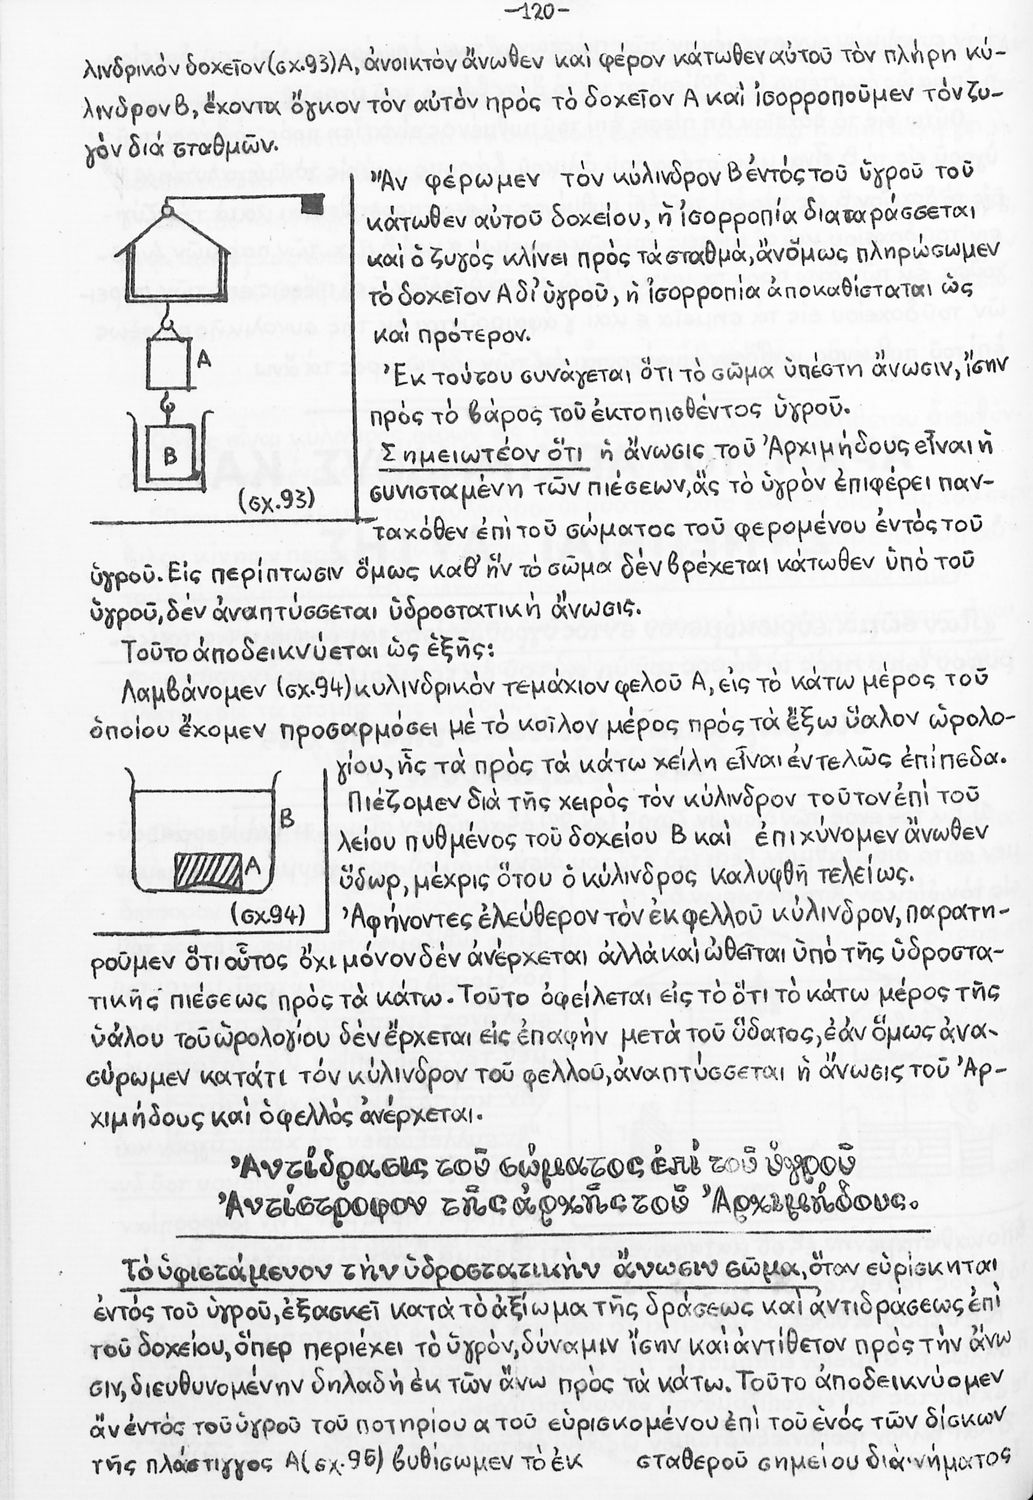 -120-
λινδρικόν δοχεῖον (σχ.93) Α, ἀνοικτόν ἄνωθεν καί φέρον κάτωθεν αὐτοῦ τὸν πλήρη κύ-
λινδρον Β, ἔχοντα ὄγκον τὸν αὐτόν πρός τὸ δοχεῖον Α καί ἰσορροποῦμεν τόν ζυ-
γόν διά σταθμῶν.
Ἄν φέρωμεν τὸν κύλινδρον Β ἐντός τοῦ ὑγροῦ τοῦ
κάτωθεν αὐτοῦ δοχείου, ἡ ἰσορροπία διαταράσσεται
καί ὁ ζυγός κλίνει πρός τά σταθμά, ἄν ὅμως πληρώσωμεν
τὸ δοχεῖον Α δι' ὑγροῦ, ἡ ἰσορροπία ἀποκαθίσταται ὡς
καί πρότερον.
Ἐκ τούτου συνάγεται ὅτι τὸ σῶμα ὑπέστη ἄνωσιν, ἴσην
πρὸς τὸ βάρος τοῦ ἐκτοπισθέντος ὑγροῦ.
Σημειωτέον ὅτι ἡ ἄνωσις τοῦ Ἀρχιμήδους εἶναι ἡ
συνισταμένη τῶν πιέσεων, ἅς τὸ ὑγρὸν ἐπιφέρει παν-
ταχόθεν ἐπί τοῦ σώματος τοῦ φερομένου ἐντός τοῦ
ὑγροῦ. Εἰς περίπτωσιν ὅμως καθ' ἥν τὸ σῶμα δέν βρέχεται κάτωθεν ὑπό τοῦ
ὑγροῦ, δέν ἀναπτύσσεται ὑδροστατική ἄνωσις.
Τοῦτο ἀποδεικνύεται ὡς ἑξῆς:
Λαμβάνομεν (σχ.94) κυλινδρικόν τεμάχιον φελοῦ Α, εἰς τὸ κάτω μέρος τοῦ
ὁποίου ἔχομεν προσαρμόσει μὲ τὸ κοῖλον μέρος πρός τὰ ἔξω ὕαλον ὡρολο-
γίου, ἧς τὰ πρὸς τὰ κάτω χείλη εἶναι ἐντελῶς ἐπίπεδα.
Πιέζομεν διά τῆς χειρός τὸν κύλινδρον τοῦτον ἐπί τοῦ
λείου πυθμένος τοῦ δοχείου Β καί ἐπιχύνομεν ἄνωθεν
ὕδωρ, μέχρις ὅτου ὁ κύλινδρος καλυφθῆ τελείως.
Ἀφήνοντες ἐλεύθερον τὸν ἐκ φελλοῦ κύλινδρον, παρατη-
ροῦμεν ὅτι οὗτος ὄχι μόνον δέν ἀνέρχεται ἀλλά καί ὠθεῖται ὑπό τῆς ὑδροστα-
τικῆς πιέσεως πρός τὰ κάτω. Τοῦτο ὀφείλεται εἰς τὸ ὅτι τὸ κάτω μέρος τῆς
ὑάλου τοῦ ὡρολογίου δέν ἔρχεται εἰς ἐπαφὴν μετὰ τοῦ ὕδατος, ἐάν ὅμως ἀνα-
σύρωμεν κατάτι τόν κύλινδρον τοῦ φελλοῦ, ἀναπτύσσεται ἡ ἄνωσις τοῦ Ἀρ-
χιμήδους καί ὁ φελλὸς ἀνέρχεται.
Α
Β
(σχ.93)
Β
Α
(σχ94)
Ἀντίδρασις τοῦ σώματος ἐπί τοῦ ὑγροῦ
Ἀντίστροφον τῆς ἀρχῆς τοῦ Ἀρχιμήδους.
Τὸ ὑφιστάμενον τὴν ὑδροστατικὴν ἄνωσιν σῶμα, ὅταν εὑρίσκηται
ἐντός τοῦ ὑγροῦ, ἐξασκεῖ κατὰ τὸ ἀξίωμα τῆς δράσεως καί ἀντιδράσεως ἐπί
τοῦ δοχείου, ὅπερ περιέχει τὸ ὑγρόν, δύναμιν ἴσην καί ἀντίθετον πρὸς τὴν ἄνω
σιν, διευθυνομένην δηλαδή ἐκ τῶν ἄνω πρὸς τὰ κάτω. Τοῦτο ἀποδεικνύομεν
ἄν ἐντός τοῦ ὑγροῦ τοῦ ποτηρίου α τοῦ εὑρισκομένου ἐπί τοῦ ἑνός τῶν δίσκων
τῆς πλάστιγγος Α (σχ.95) βυθίσωμεν τὸ ἐκ σταθεροῦ σημείου διὰ νήματος